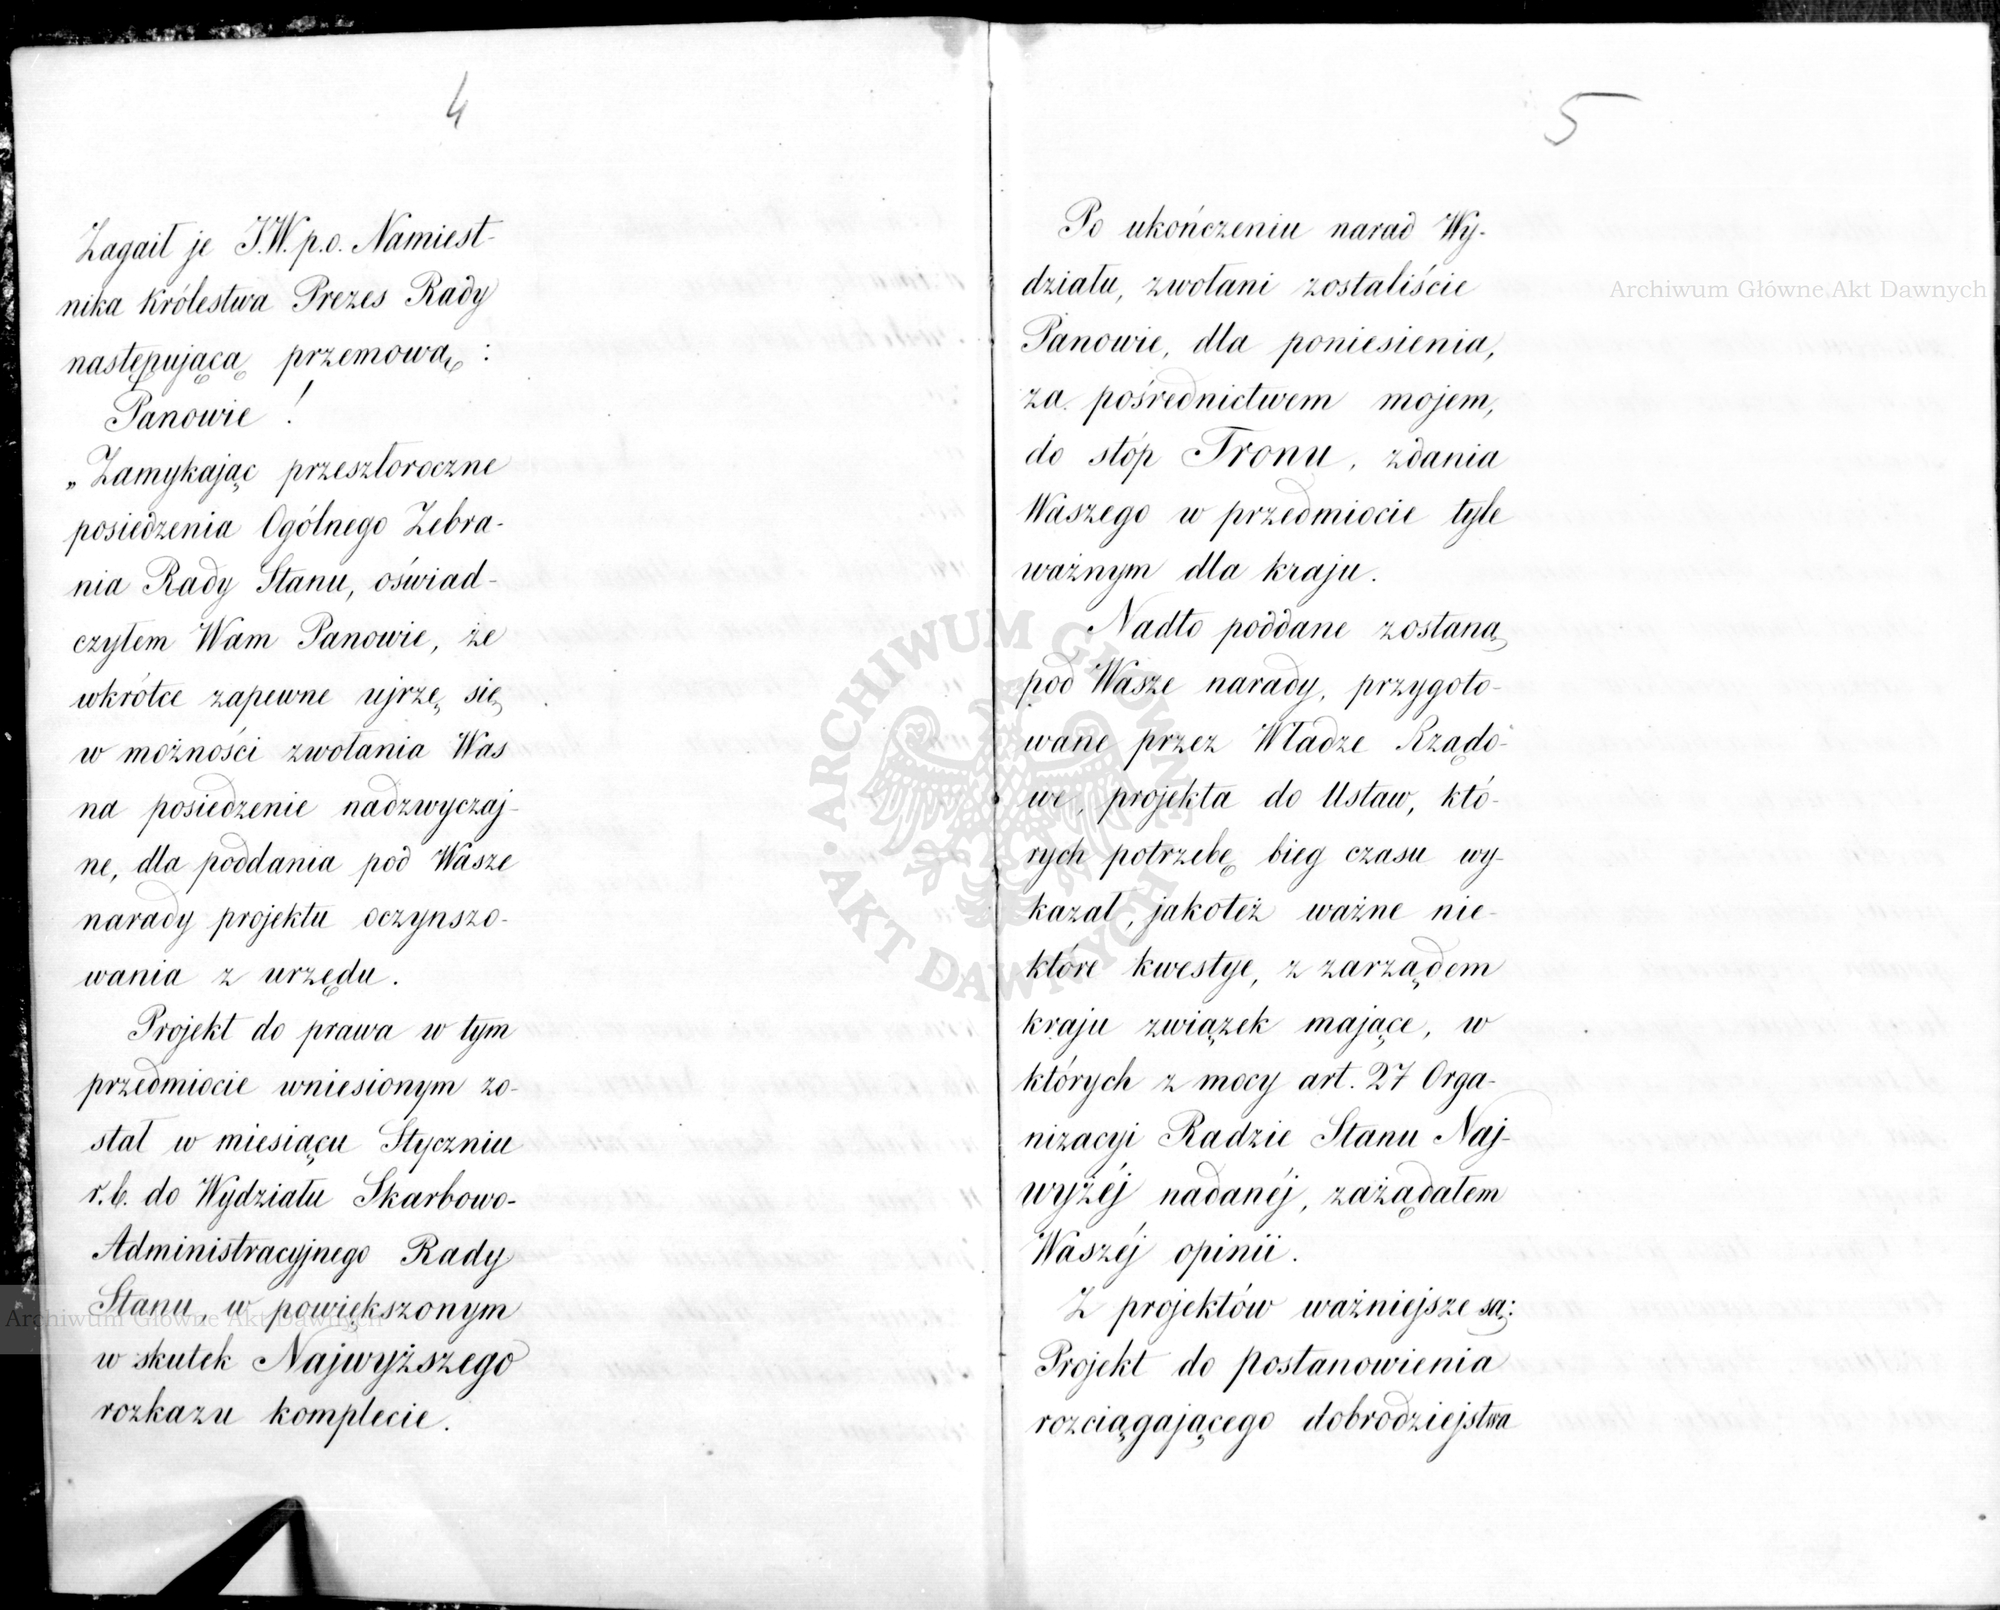 4
Zagaił je J.W. p.o. Namiest-
nika Królestwa Prezes Rady
następującą przemową:
Panowie!
„Zamykając przeszłoroczne
posiedzenia Ogólnego Zebra-
nia Rady Stanu, oświad-
czyłem Wam Panowie, że
wkrótce zapewne ujrzę się
w możności zwołania Was
na posiedzenie nadzwyczaj-
ne, dla poddania pod Wasze
narady projektu oczynszo-
wania z urzędu.
Projekt do prawa w tym
przedmiocie wniesionym zo-
stał w miesiącu Styczniu
r.b. do Wydziału Skarbowo-
Administracyjnego Rady
Stanu, w powiększonym
w skutek Najwyższego
rozkazu komplecie.
5
Po ukończeniu narad Wy-
działu, zwołani zostaliście
Panowie, dla poniesienia,
za pośrednictwem mojem,
do stóp Tronu, zdania
Waszego w przedmiocie tyle
ważnym dla kraju.
Nadto poddane zostaną
pod Wasze narady, przygoto-
wane przez Władze Rządo-
we, projekta do Ustaw, któ-
rych potrzebę bieg czasu wy-
kazał, jakoteż ważne nie-
które kwestye, z zarządem
kraju związek mające, w
których z mocy art. 27 Orga-
nizacyi Radzie Stanu Naj-
wyżéj nadanéj, zażądałem
Waszéj opinii.
Z projektów ważniejsze są:
Projekt do postanowienia
rozciągającego dobrodziejstwa
Archiwum Główne Akt Dawnych
Archiwum Główne Akt Dawnych
ARCHIWUM GŁÓWNE
AKT DAWNYCH